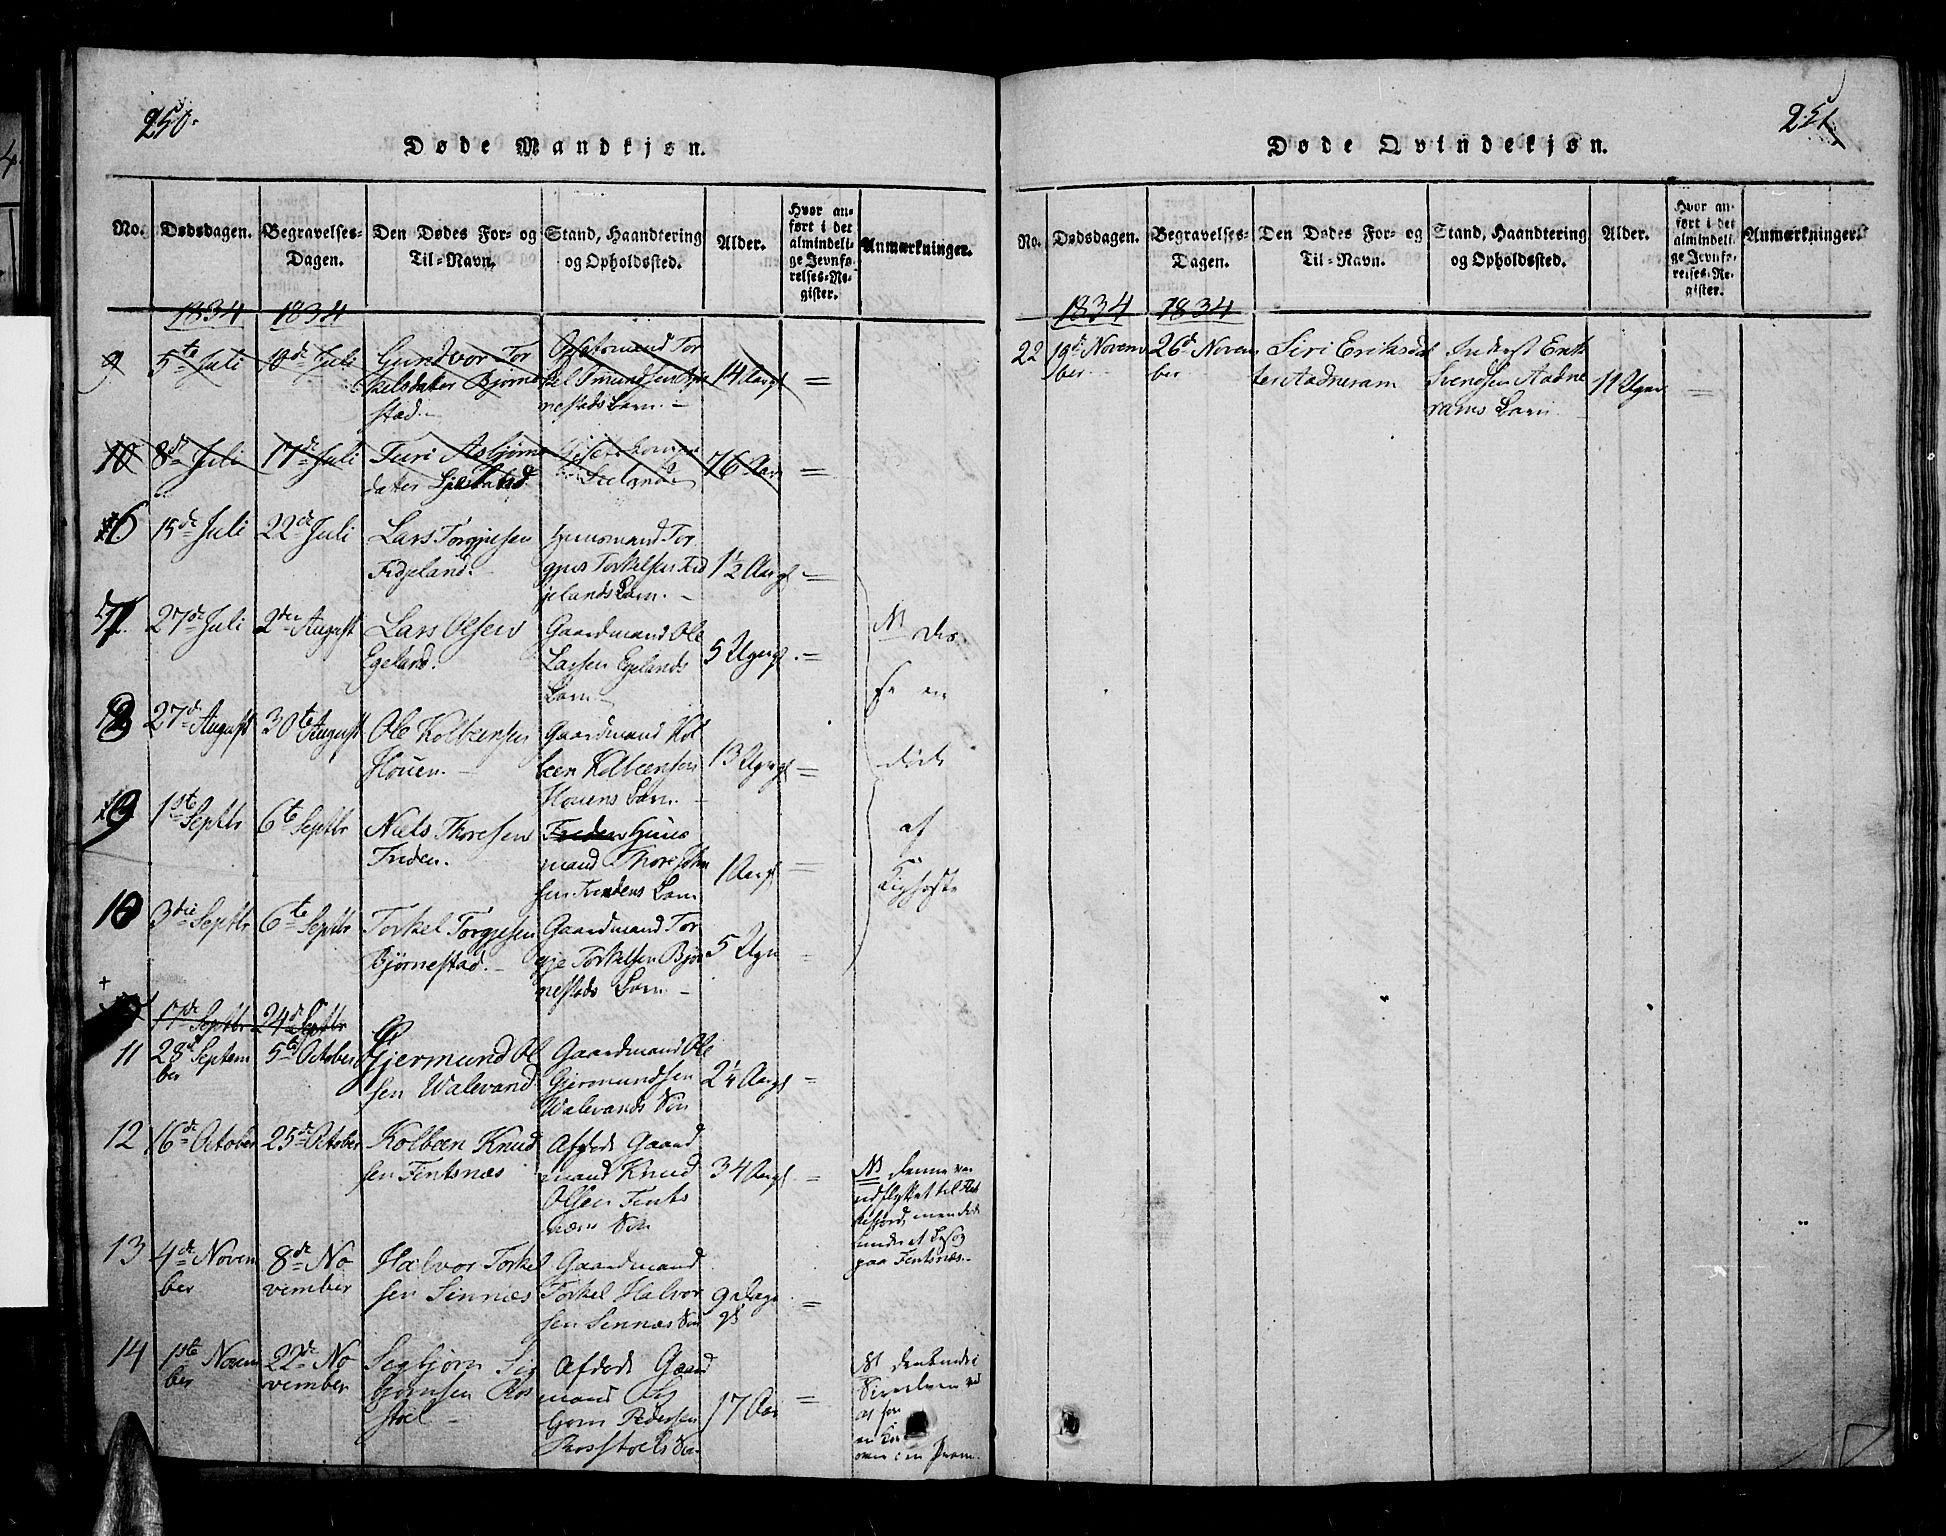 250.
Døde Mandkjøn.
No.
Dødsdagen.
Begravelses-
Dagen.
Den Dødes For- og
Til-Navn.
Stand, Haandtering
og Opholdssted.
Alder.
Hvor an-
ført i det
almindeli-
ge Jevnfø-
relses-Re-
gister.
Anmærkninger.
1834 1834
9 5te Juli 10de Juli Gundvor Tor
kelsdater Bjørne
stad.
kel Omundsen Bjør
nestads Barn.
14 Aargl =
10 8de Juli 17de Juli Turi Asbjørns
dater
76 Aar =
6 15de Juli 22de Juli Lars Torgjesen
Fidjeland.
Huusmand Tor
gjus Torkelsen Fid
jelands Barn.
1½ Aargl =
7 27de Juli 2den August Lars Olsen
Egeland.
Gaardmand Ole
Larsen Egelands
Barn
5 Ugrgl. =
8 27de August 30te August Ole Kolbeensen
Houen.
Gaardmand Kol
been Kolbeensen
Houens Barn.
13 Ugrgl =
9 1ste Septbr 6te Septbr Niels Thoresen
Freden.
Freden Huus
mand Thore
sen Fredens Barn
1 Aargl =
10 3die Septbr 6te Septbr Torkel Torgjesen
Bjørnestad.
Gaardmand Tor
gje Torkelsen Bjør
nestads Barn
5 Ugr =
NB dis
se ere
døde
af
Kighoste
17de Septbr 24de Septbr
11 28de Septem
ber
5te October
Gjermund Ol
sen Walevand
Gaardmand Ole
Gjermundsen
Walevands Søn
2¼ Aargl =
12 16de October 25de October Kolbeen Knud
sen Fintsnæs
Afdøde Gaard
mand Knud
Olsen Fints
næs Søn
34 Aargl =
NB denne var
udflyttet til Flek
kefjord, men døde
under et Besøg
paa Fintsnæs.
13 4de Novem
ber
8de No
vember
Halvor Torkel
sen Sinnæs
Gaardmand
Torkel Halvor
sen Sinnæs Søn
9 Dage
gl =
14 1ste Novem
ber
22de No
vember
Segbjørn Sig
bjørnsen Ros
stoel
Afdøde Gaard
mand Sig
bjørn Pedersen
Rosstoels Søn
17 Aar =
NB
251.
Døde Qvindekjøn.
No.
Dødsdagen.
Begravelses-
Dagen.
Den Dødes For- og
Til-Navn.
Stand, Haandtering
og Opholdssted.
Alder.
Hvor an-
ført i det
almindeli-
ge Jevnfø-
relses-Re-
gister.
Anmærkninger.
1834 1834
22 19de Novem
ber
26de Novem
ber
Siri Eriksda
ter Aadneram
Inderst Erik
Svendsen Aadne
rams Barn
11 Uger =